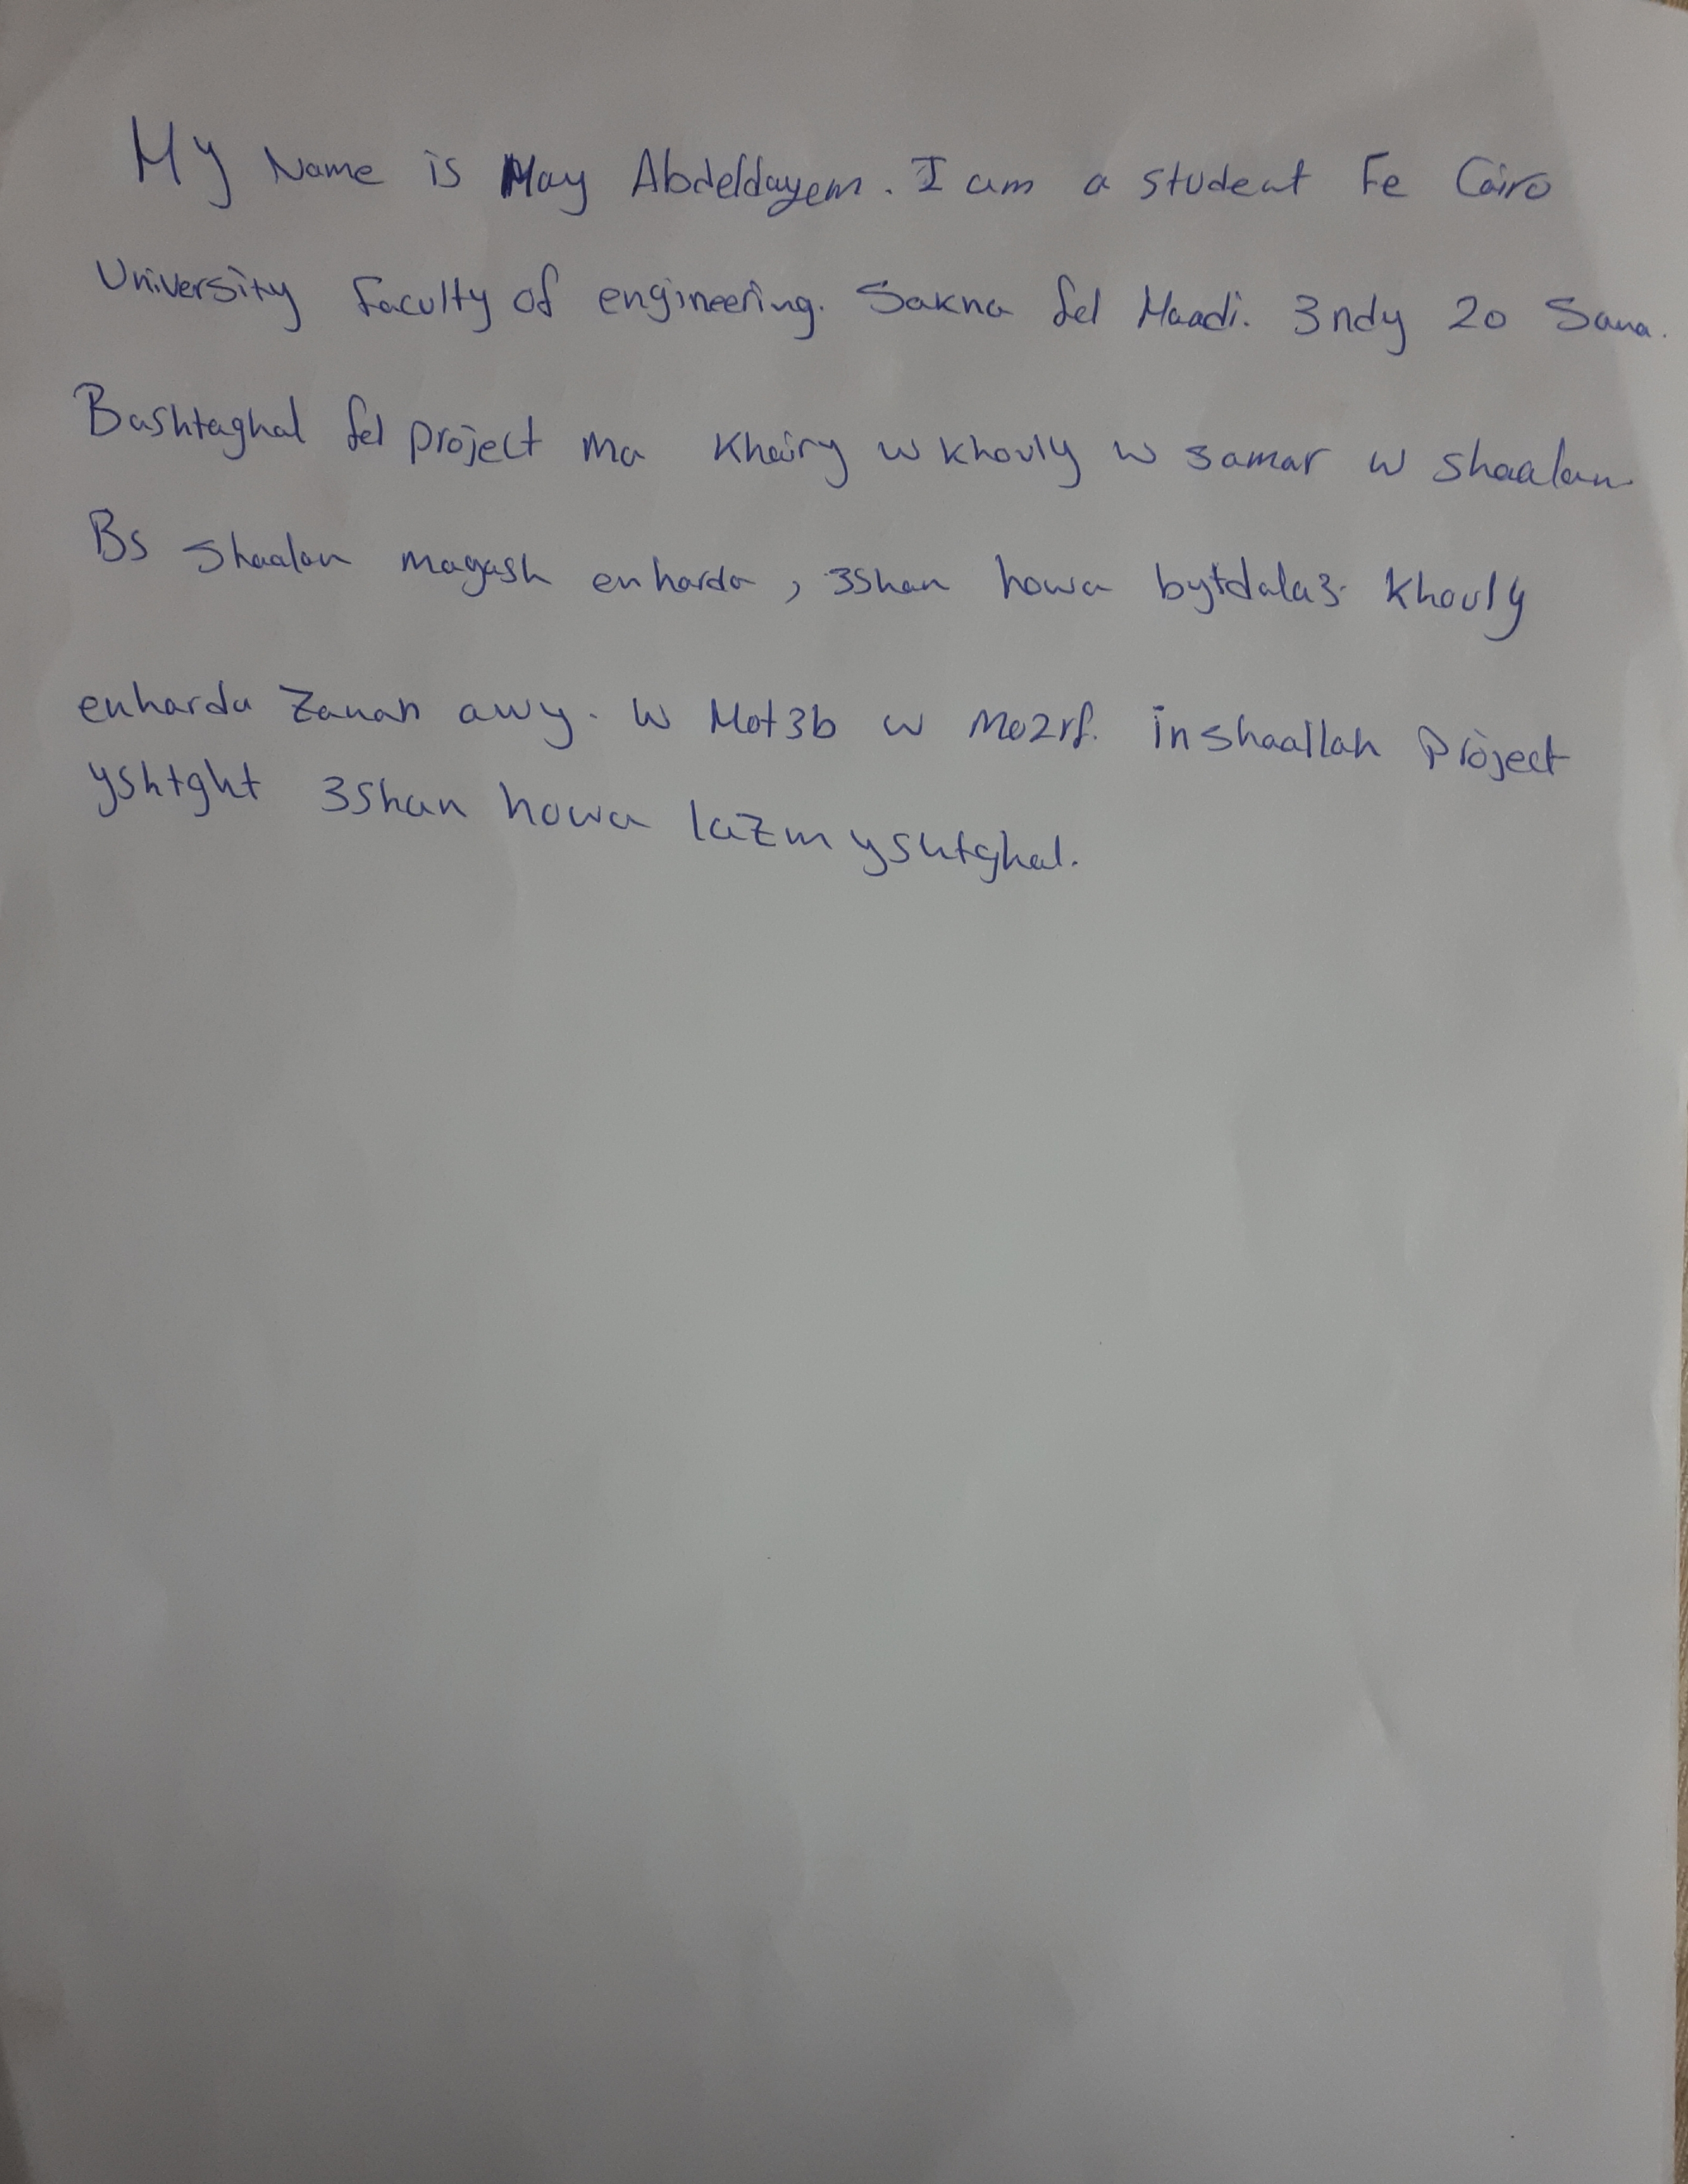 My Name is May Abdeldayem. I am a student Fe Cairo
University Faculty of engineering. Sakna fel Maadi. 3ndy 20 Sana.
Bashtaghal fel project ma Khairy w khouly w samar w shaalan.
Bs Shaalan magash enharda, 3shan howa bytdala3. Khouly
enharda Zanan awy. W Mot3b w Mo2rf. inshaallah Project
yshtght 3shan howa lazm yshtghal.